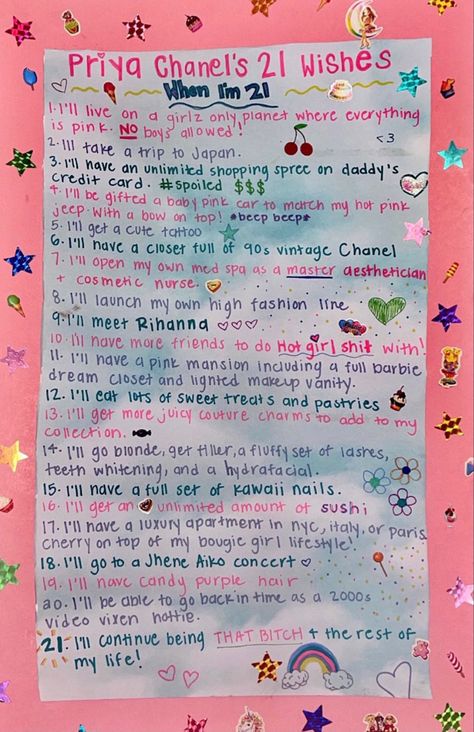 Priya Chanel's 21 Wishes
When I'm 21
1. I'll live on a girlz only planet where everything
is pink. NO boys allowed!
<3
2. I'll take a trip to Japan.
3. I'll have an unlimited shopping spree on daddy's
credit card. #spoiled $$$
4. I'll be gifted a baby pink car to match my hot pink
jeep with a bow on top! *beep beep*
5. I'll get a cute tattoo
6. I'll have a closet full of 90s vintage Chanel
7. I'll open my own med spa as a master aesthetician
+ cosmetic nurse.
8. I'll launch my own high fashion line
9. I'll meet Rihanna ♡♡♡
10. I'll have more friends to do Hot girl shit with!
11. I'll have a pink mansion including a full barbie
dream closet and lighted makeup vanity.
12. I'll eat lots of sweet treats and pastries
13. I'll get more juicy couture charms to add to my
collection.
14. I'll go blonde, get filler, a fluffy set of lashes,
teeth whitening, and a hydrafacial.
15. I'll have a full set of kawaii nails.
16. I'll get an unlimited amount of sushi
17. I'll have a luxury apartment in nyc, italy, or paris.
Cherry on top of my bougie girl lifestyle!
18. I'll go to a Jhene Aiko concert ♡
19. I'll have candy purple hair
20. I'll be able to go back in time as a 2000s
video vixen hottie.
21. I'll continue being THAT BITCH 4 the rest of
my life!